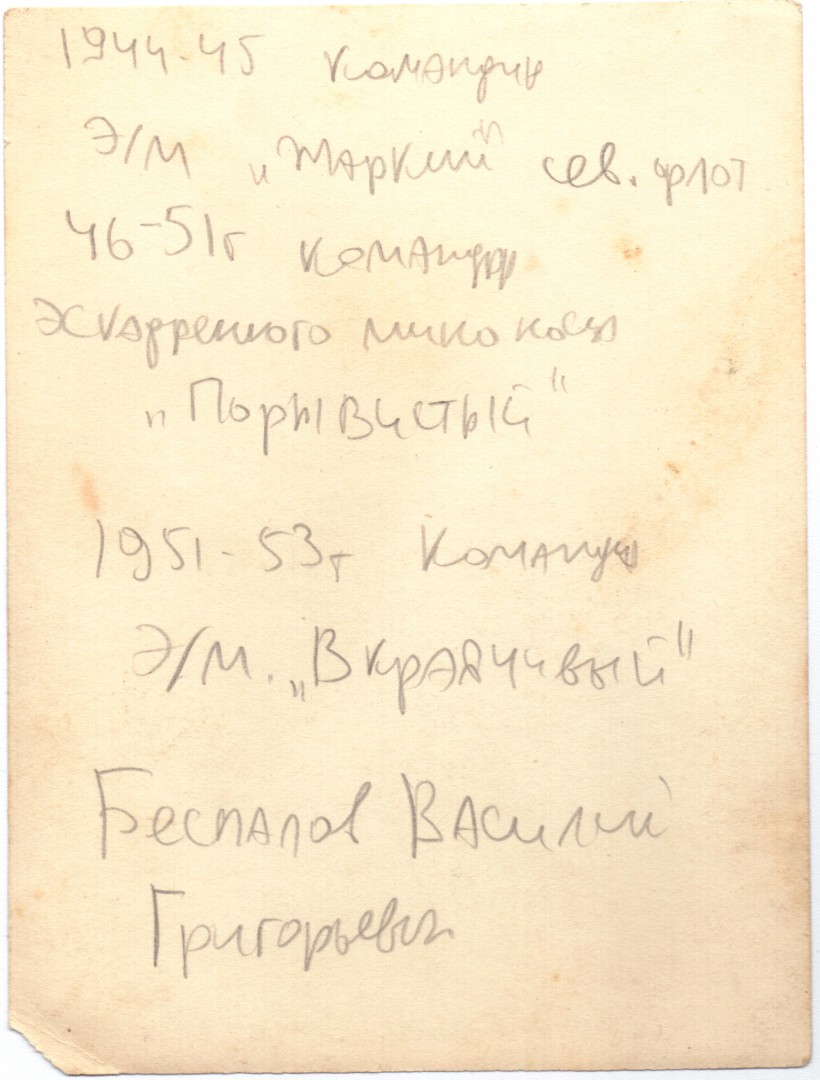 1944-45 командир
Э/М „Жаркий" сев. флот
46-51г командир
эскадренного миноносца
„Порывистый"
1951-53г командир
Э/М. „Вкрадчивый"
Беспалов Василий
Григорьевич